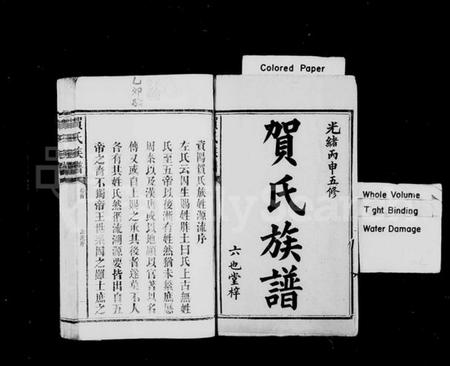 Colored Paper
Whole Volume
Tight Binding
Water Damage
光緒丙申五修
賀氏族譜
六也堂梓
乙卯
賀氏族譜
賀氏族姓源流序
左氏云因生賜姓胙土曰氏上古無姓
氏至五帝以後漸有姓然猶未繁庶歷
周秦以及漢唐或以地顯以官著以名
傳又或自上賜之承其後者遂某名人
各有其姓氏然循流溯源要皆出自五
帝之裔不獨帝王世系閥之蹟士庶之